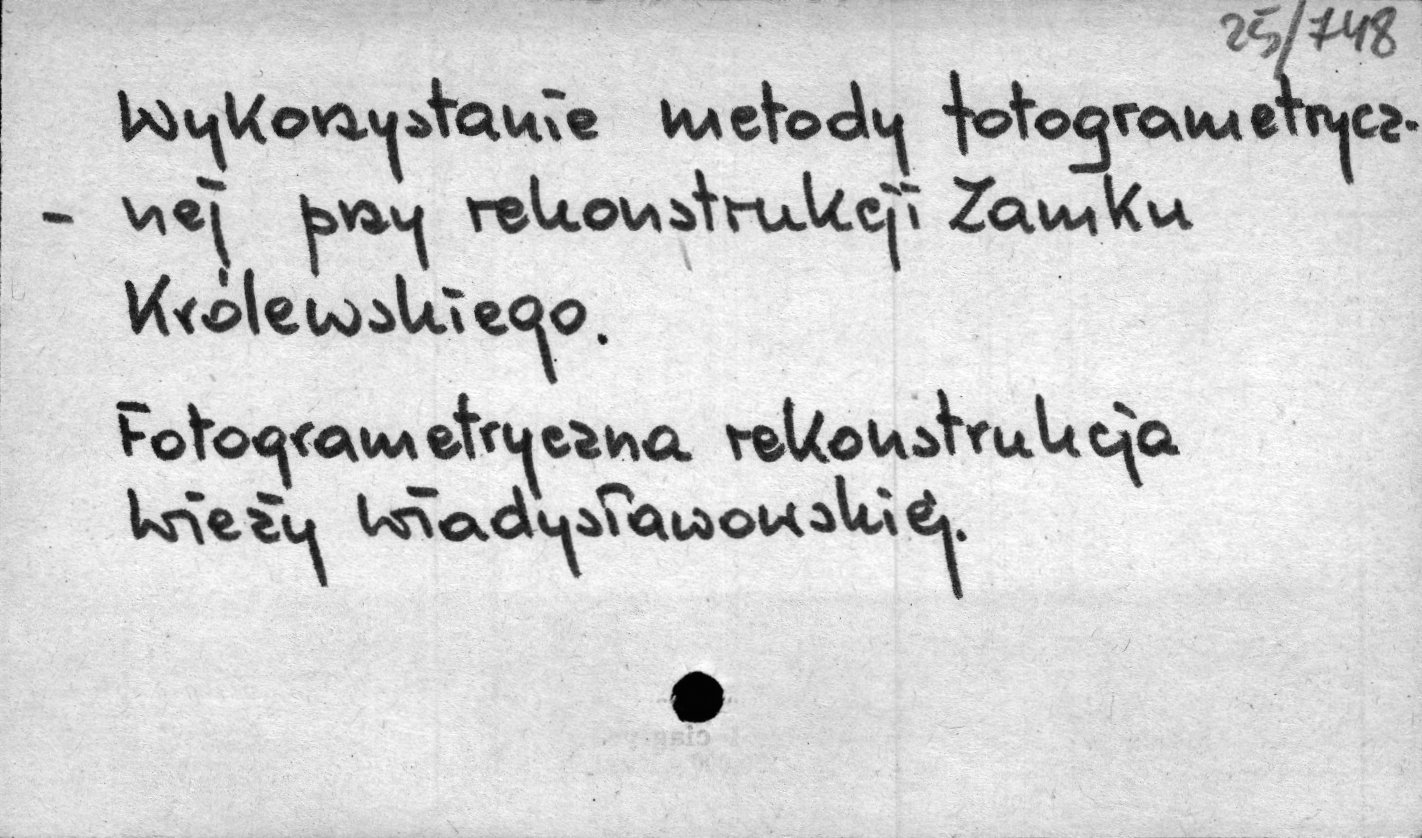 25/748
Wykorzystanie metody fotogrametrycz-
- nej przy rekonstrukcji Zamku
Królewskiego.
Fotogrametryczna rekonstrukcja
Wieży Władysławowskiej.